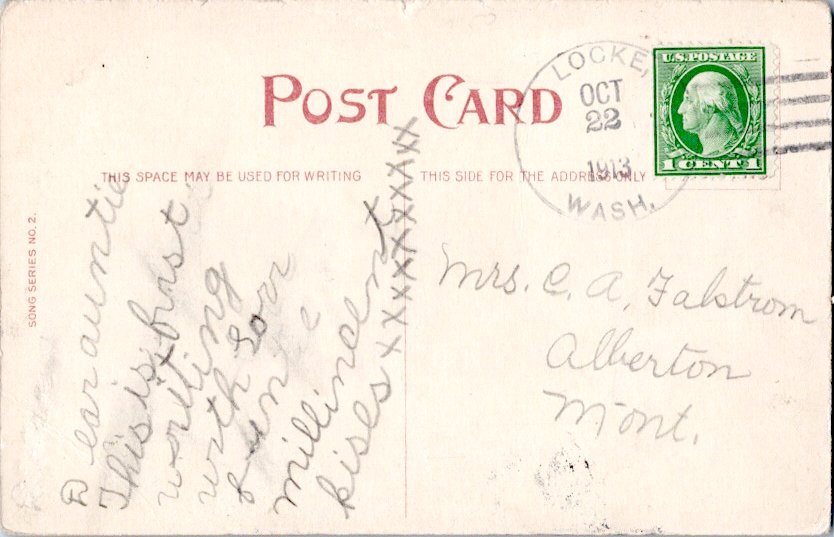 POST CARD
THIS SPACE MAY BE USED FOR WRITING
THIS SIDE FOR THE ADDRESS ONLY
SONG SERIES NO. 2.
LOCKE,
OCT
22
1913
WASH.
U.S. POSTAGE
1 CENT 1
Dear auntie
This is
millinoent
kises xxxxxxxxxxxxx
Mrs. C. A. Falstrom
Alberton
Mont.